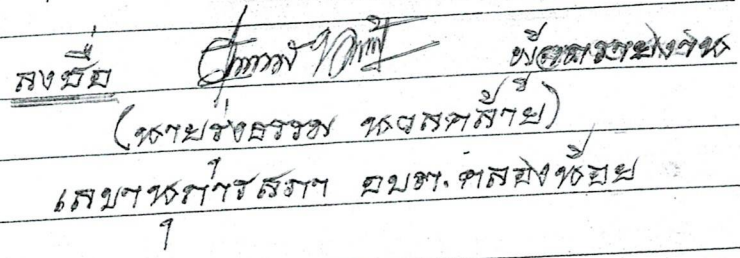 ลงชื่อ ผู้จดรายงาน
(นายรุ่งธรรม นวลคล้าย)
เลขานุการสภา อบต.คลองน้อย